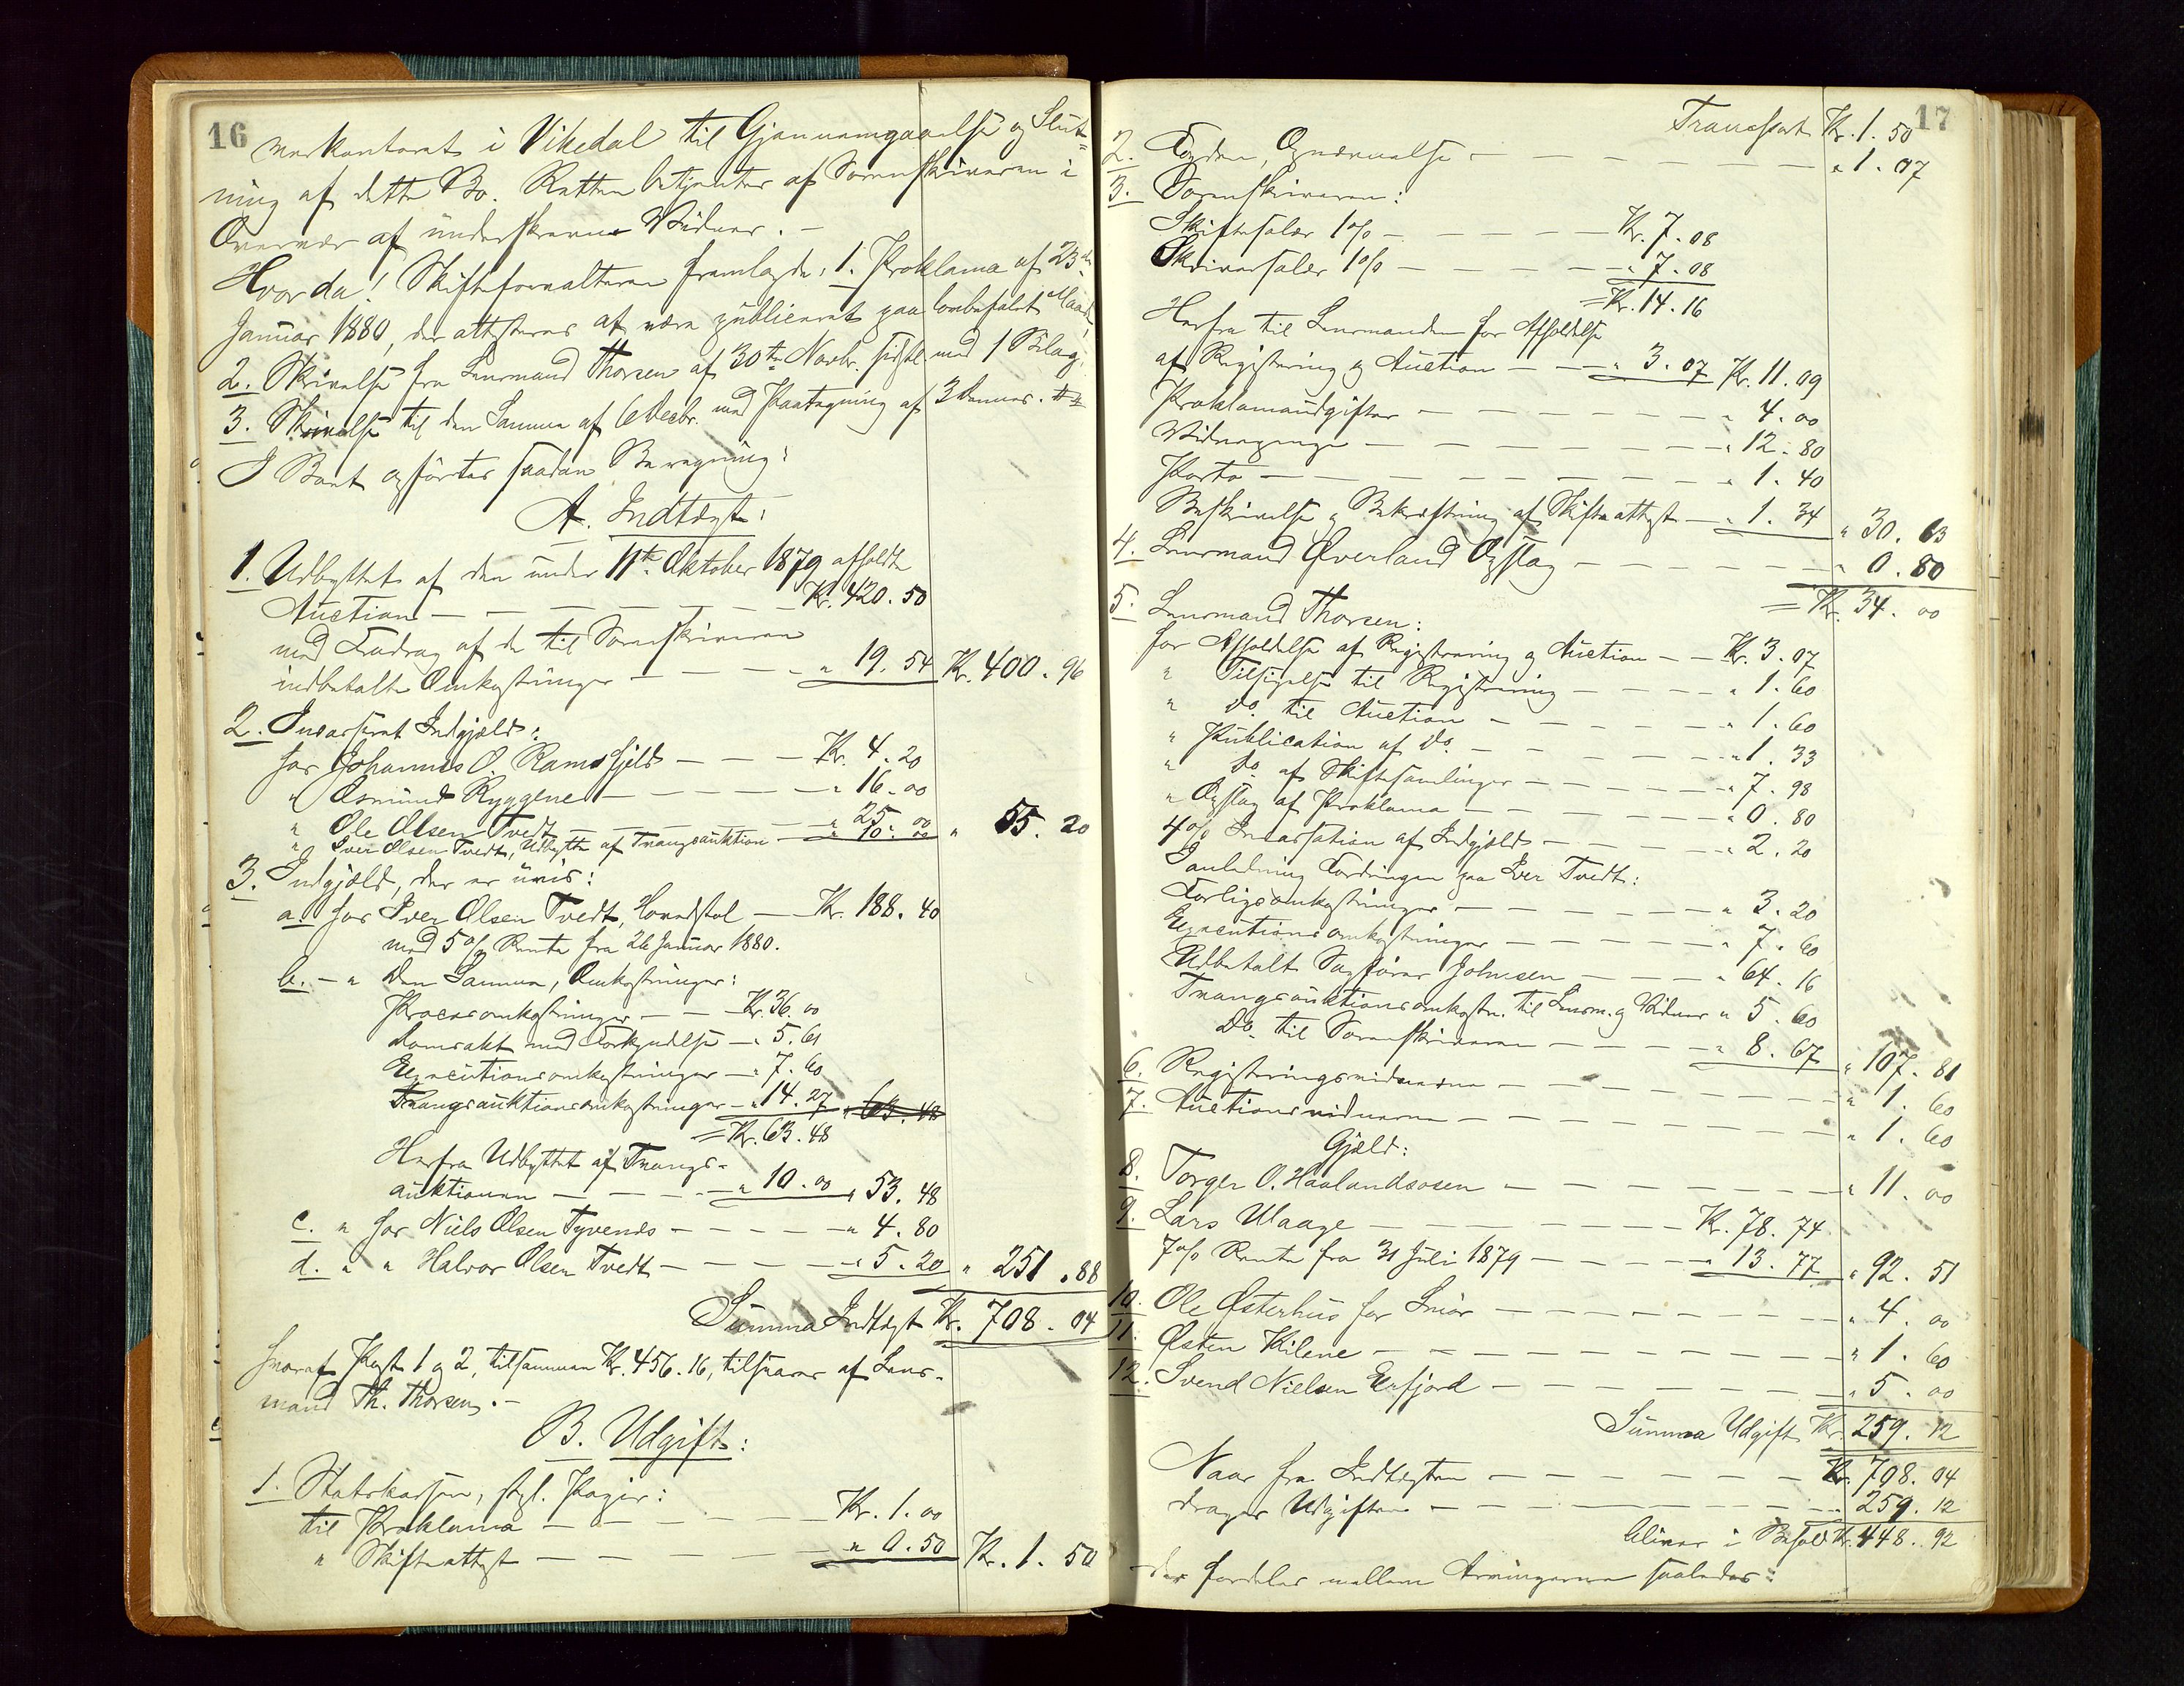 16
verkontoret i Vikedal til Gjennemgaaelse og Slut-
ning af dette Bo. Retten betjentes af Sorenskriveren i
Overvær af underskrevne Vidner. –
Hvorda! Skifteforvalteren fremlagde: 1. Proklama af 23de
Januar 1880, der attesteres at være publiceret paa lovbefalet Maade,
2. Skrivelse fra Lensmand Thorsen af 30te Novbr. sidstl. med 1 Bilag,
3. Skrivelse til den Samme af 6 Decbr. med Paategning af 3 dennes.
I Boet opførtes saadan Beregning:
A. Indtægt:
1. Udbyttet af den under 11te Oktober 1879 afholdte
Auction – – – – Kr. 420. 50
med Fradrag af de til Sorenskriveren
indbetalte Omkostninger – – – " 19. 54 Kr. 400. 96
2. Incasseret Indgjæld:
for Johannes O. Ramsfjeld – – – Kr. 4. 20
" Asmund Ryggene – – – – " 16. 00
" Ole Olsen Tvedt – – – – " 25. 00
" Iver Olsen Tvedt, Udbytte af Tvangsauktion – " 10. 00 " 55. 20
3. Indgjæld, der er uvis:
a. for Iver Olsen Tvedt, Hovedstol – Kr. 188. 40
med 5 % Rente fra 26 Januar 1880.
b. – " den Samme, Omkostninger:
Procesomkostninger – – Kr. 36. 00
Domsakt med Forkyndelse – " 5. 61
Executionsomkostninger – " 7. 60
Tvangsauktionsomkostninger – " 14. 27 " 63. 48
= Kr. 63. 48
Herfra Udbyttet af Tvangs-
auktionen – – – – " 10. 00 " 53. 48
c. " for Niels Olsen Tyvenes – – – – " 4. 80
d. " " Halvor Olsen Tvedt – – – – " 5. 20 " 251. 88
Summa Indtægt Kr. 708. 04
hvoraf Post 1 og 2, tilsammen Kr. 456. 16, tilsvares af Lens-
mand Th. Thorsen. –
B. Udgift:
1. Statskassen, stpl. Papir:
til Proklama – – – – – Kr. 1. 00
" Skifteattest – – – – – " 0. 50 Kr. 1. 50
17
Transport Kr. 1. 50
2. Fogden, Opnævnelse – – – – – " 1. 07
3. Sorenskriveren:
Skiftesalær 1 % – – – – Kr. 7. 08
Skriversalær 1 % – – – – " 7. 08
= Kr. 14. 16
Herfra til Lensmanden for Afholdelse
af Registrering og Auction – – " 3. 07 Kr. 11. 09
Proklamaudgifter – – – – – " 4. 00
Vidnepenge – – – – – " 12. 80
Porto – – – – – – " 1. 40
Beskrivelse og Bekræftning af Skifteattest – " 1. 34 " 30. 63
4. Lensmand Øverland Opslag – – – – – " 0. 80
= Kr. 34. 00
5. Lensmand Thorsen:
for Afholdelse af Registrering og Auction – – Kr. 3. 07
" Tilsigelse til Registrering – – – – " 1. 60
" do. til Auction – – – – – " 1. 60
" Publication af do. – – – – – " 1. 33
" do. af Skiftesamlinger – – – – " 7. 98
" Opslag af Proklama – – – – " 0. 80
4 % Incassation af Indgjæld – – – – " 2. 20
I anledning Fordringen paa Iver Tvedt:
Forligsomkostninger – – – – – " 3. 20
Executionsomkostninger – – – – " 7. 60
Udbetalt Sagfører Johnsen – – – " 64. 16
Tvangsauktionsomkostn. til Lensm. og Vidner " 5. 60
do. til Sorenskriveren – – – – " 8. 67 " 107. 81
6. Registreringsvidnerne – – – – – " 1. 60
7. Auctionsvidnerne – – – – – " 1. 60
Gjæld:
8. Torger O. Haalandsosen – – – – – " 11. 00
9. Lars Waage – – – – – Kr. 78. 74
7 % Rente fra 31 Juli 1879 – – – – " 13. 77 " 92. 51
10. Ole Østerhus for Snør – – – – – " 4. 00
11. Østen Kilene – – – – – " 1. 60
12. Svend Nielsen Erfjord – – – – – " 5. 00
Summa Udgift Kr. 259. 12
Naar fra Indtægten – – – – – Kr. 708. 04
drages Udgiften – – – – – " 259. 12
bliver i Behold Kr. 448. 92
der fordeles mellem Arvingerne saaledes: